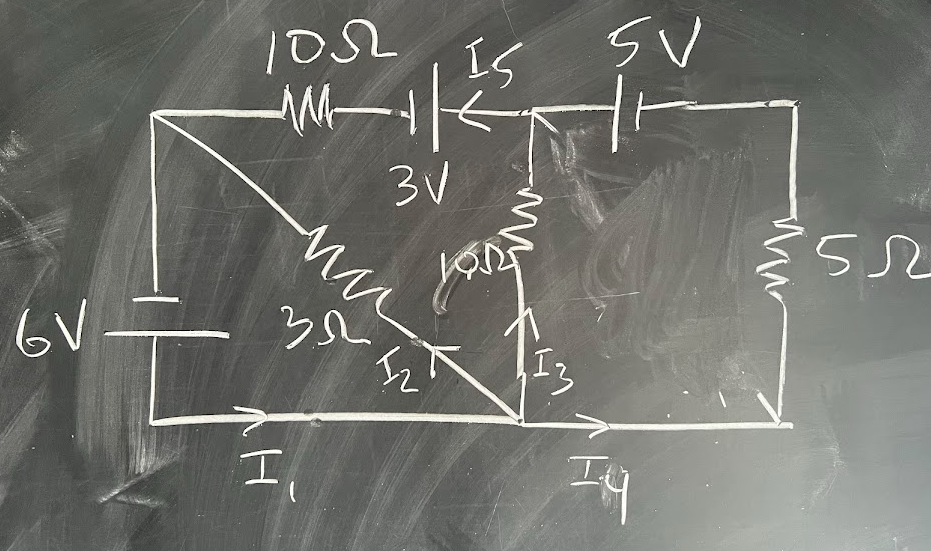 10Ω
I5
5V
3V
10Ω
5Ω
6V
3Ω
I2
I3
I1
I4